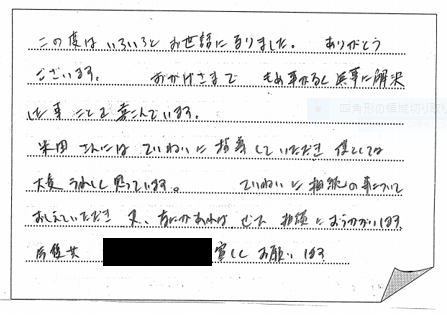 この度は いろいろと お世話に なりました。 ありがとう
ございます。 おかげさまで もめ事がなく 無事に解決
した事 とても 喜こんでいます。
米田 さんには ていねいに 指導していただき 僕としては
大変 うれしく思っています。 ていねいに 相続の事について
おしえていただき 又、なにかあれば ぜひ 相談に おうかがいします
今後共 宜しく お願いします
四角形の領域切り取